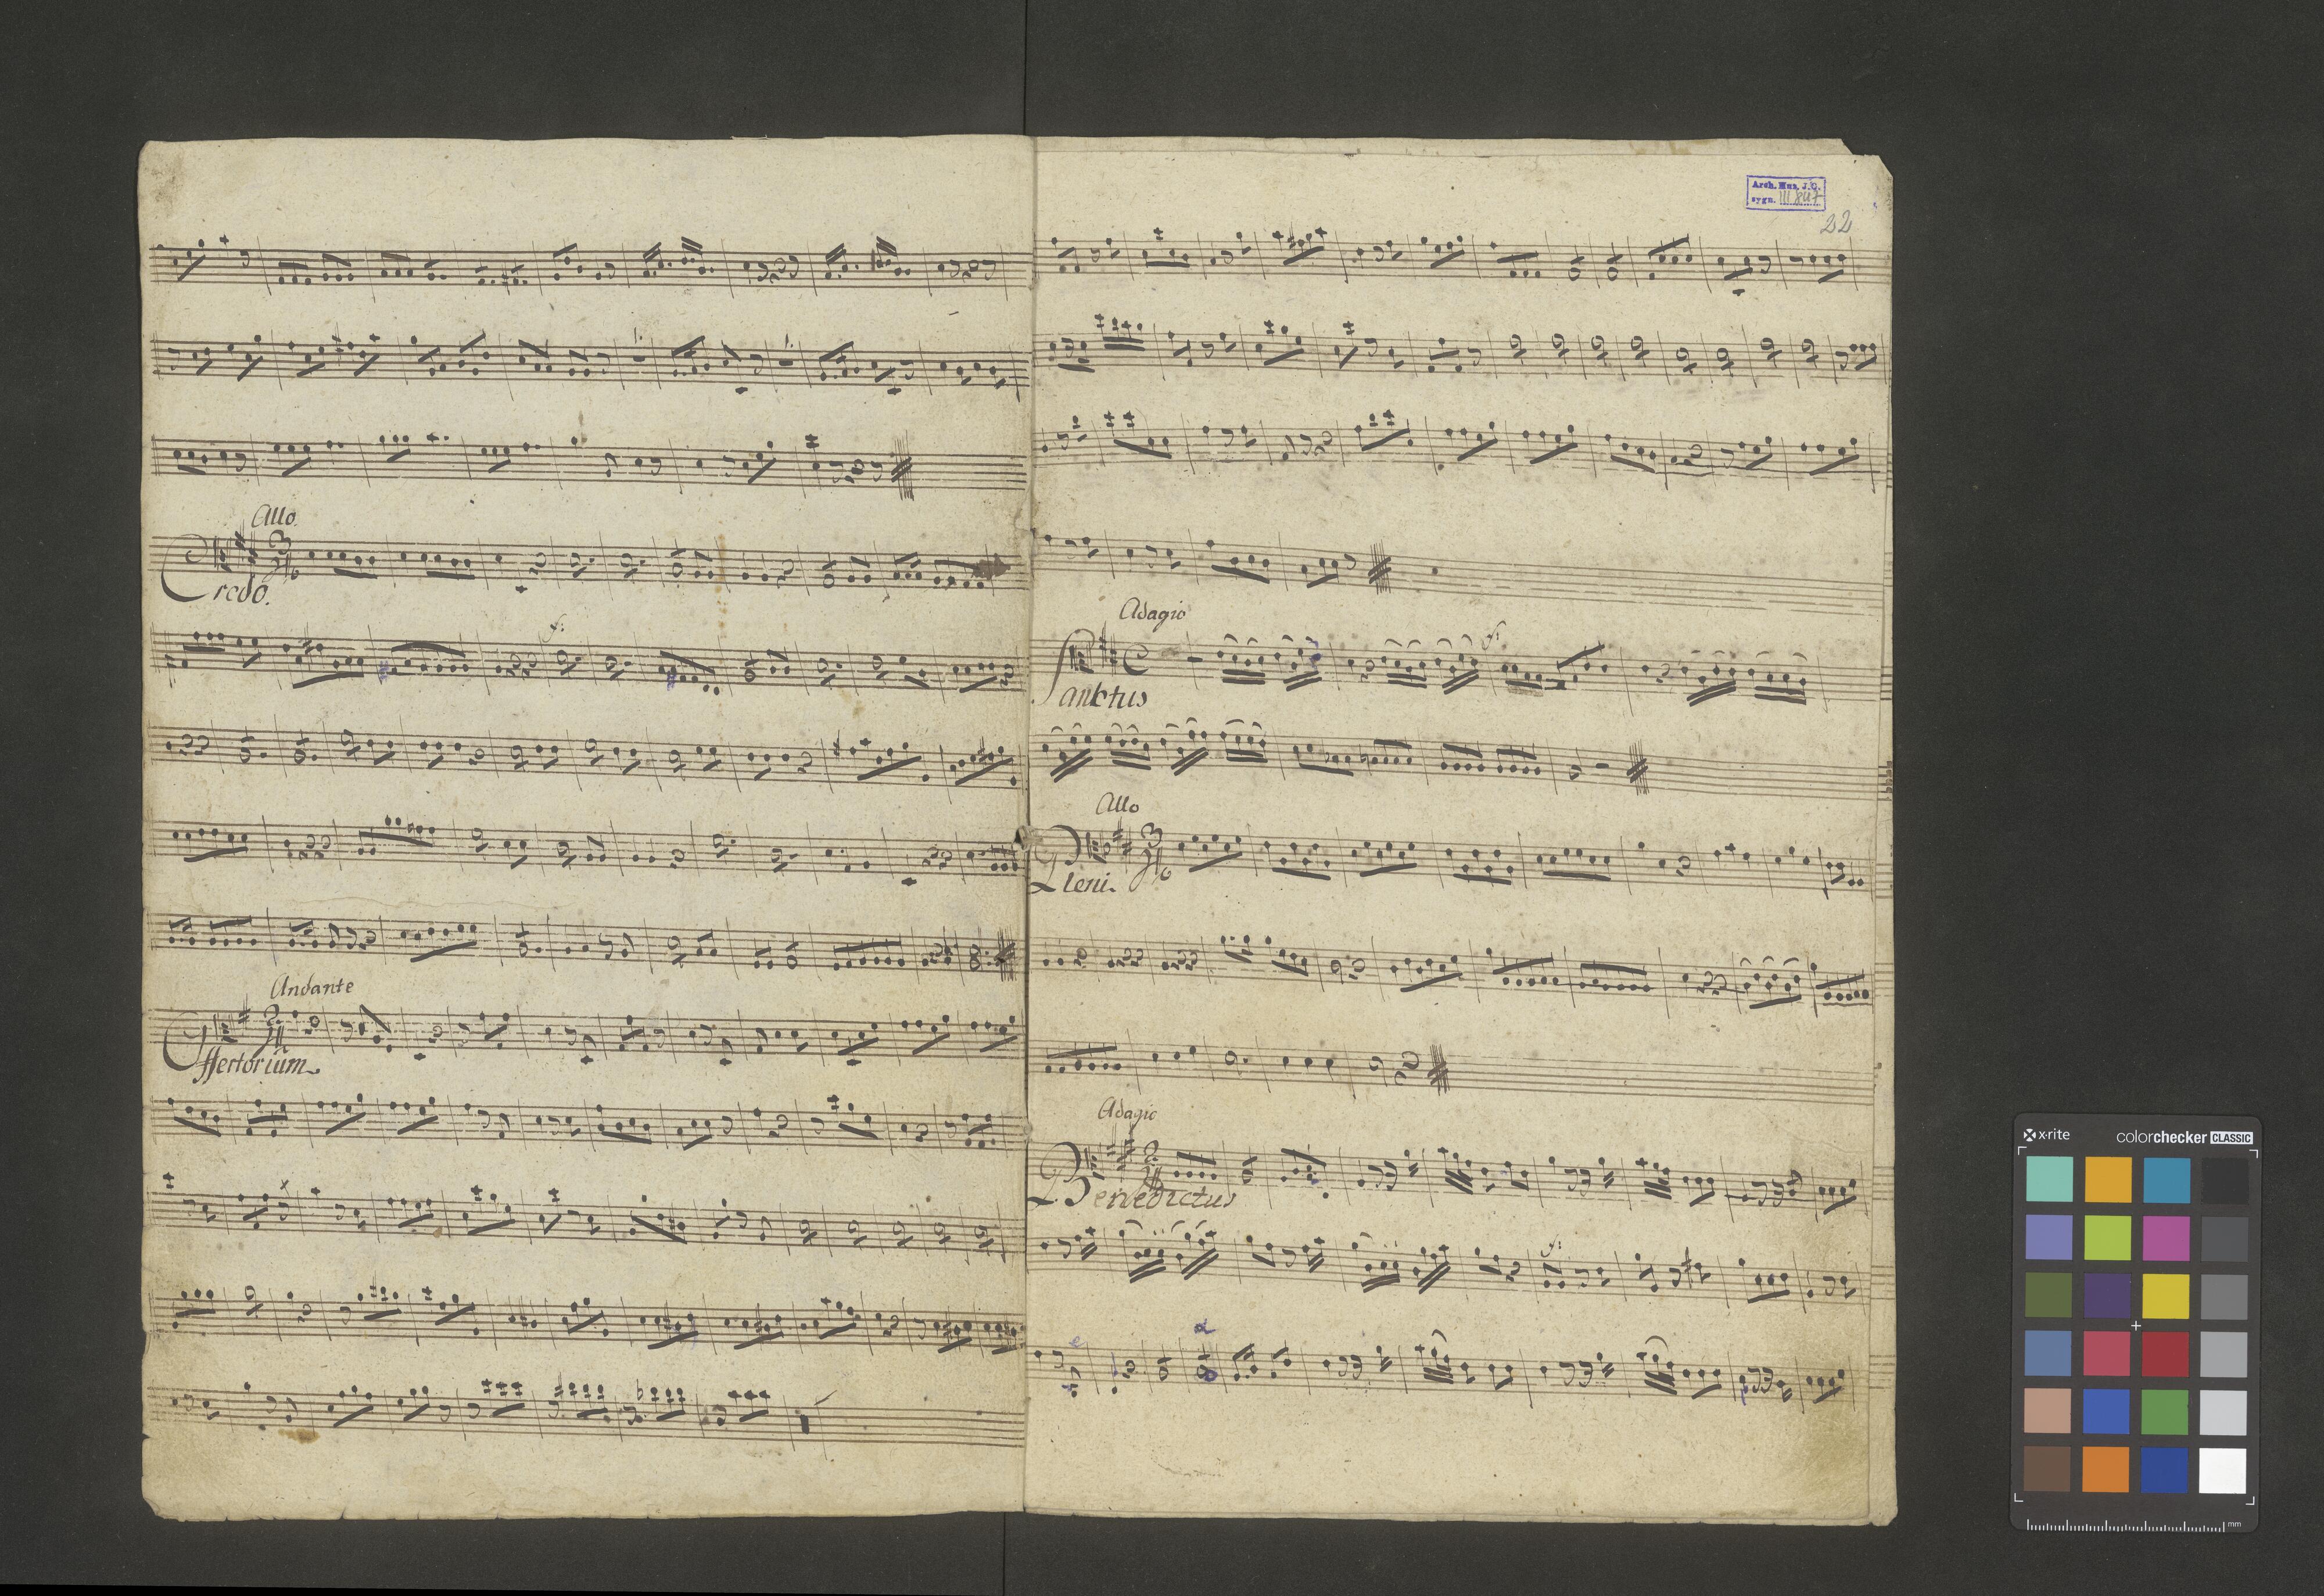 Allo.
Credo.
f:
Andante
Offertorium.
Arch. Mus. J.G.
sygn. III 847
22
Adagio
f:
Sanktus
Allo
Pleni.
Adagio
Benedictus
f:
e
a
x-rite
colorchecker CLASSIC
mm